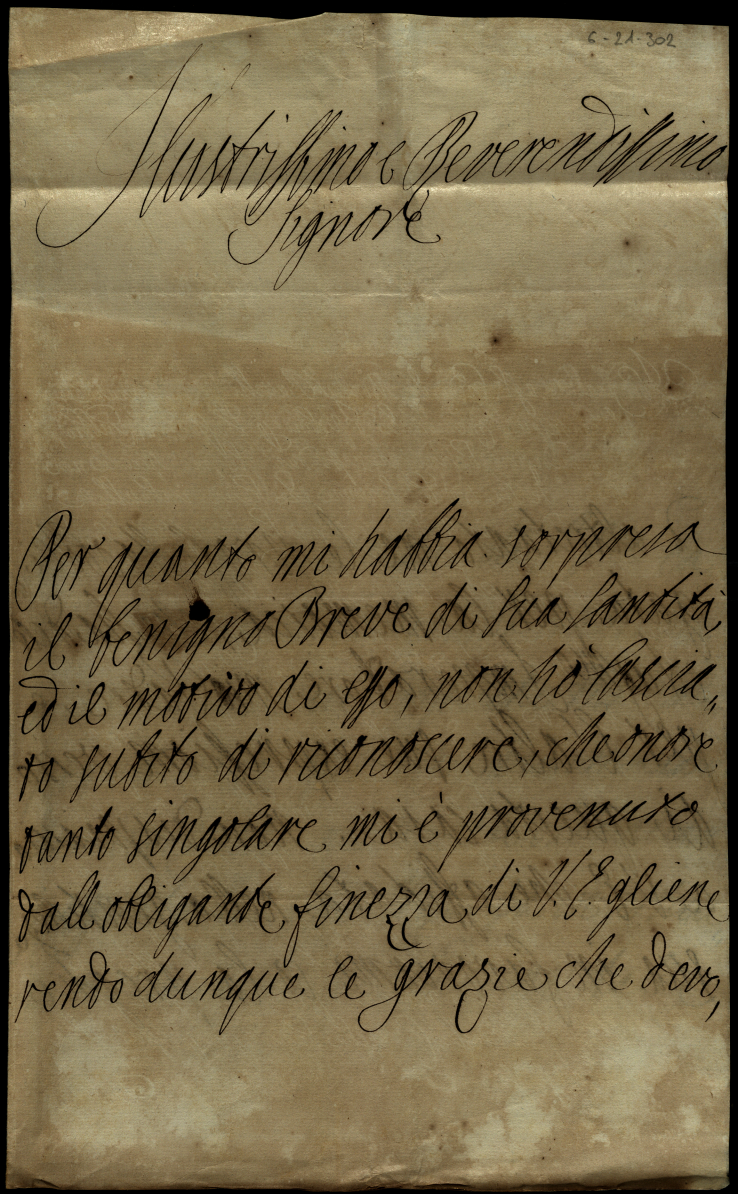 6-21-302
Illustrissimo e Reverendissimo
Signore
Per quanto mi habbia sorpresa
il benigno Breve di Sua Santità,
ed il motivo di esso, non hò lascia„
to subito di riconoscere, che onore
tanto singolare mi è provenuto
dall obligante finezza di V. E. gliene
rendo dunque le grazie che devo,